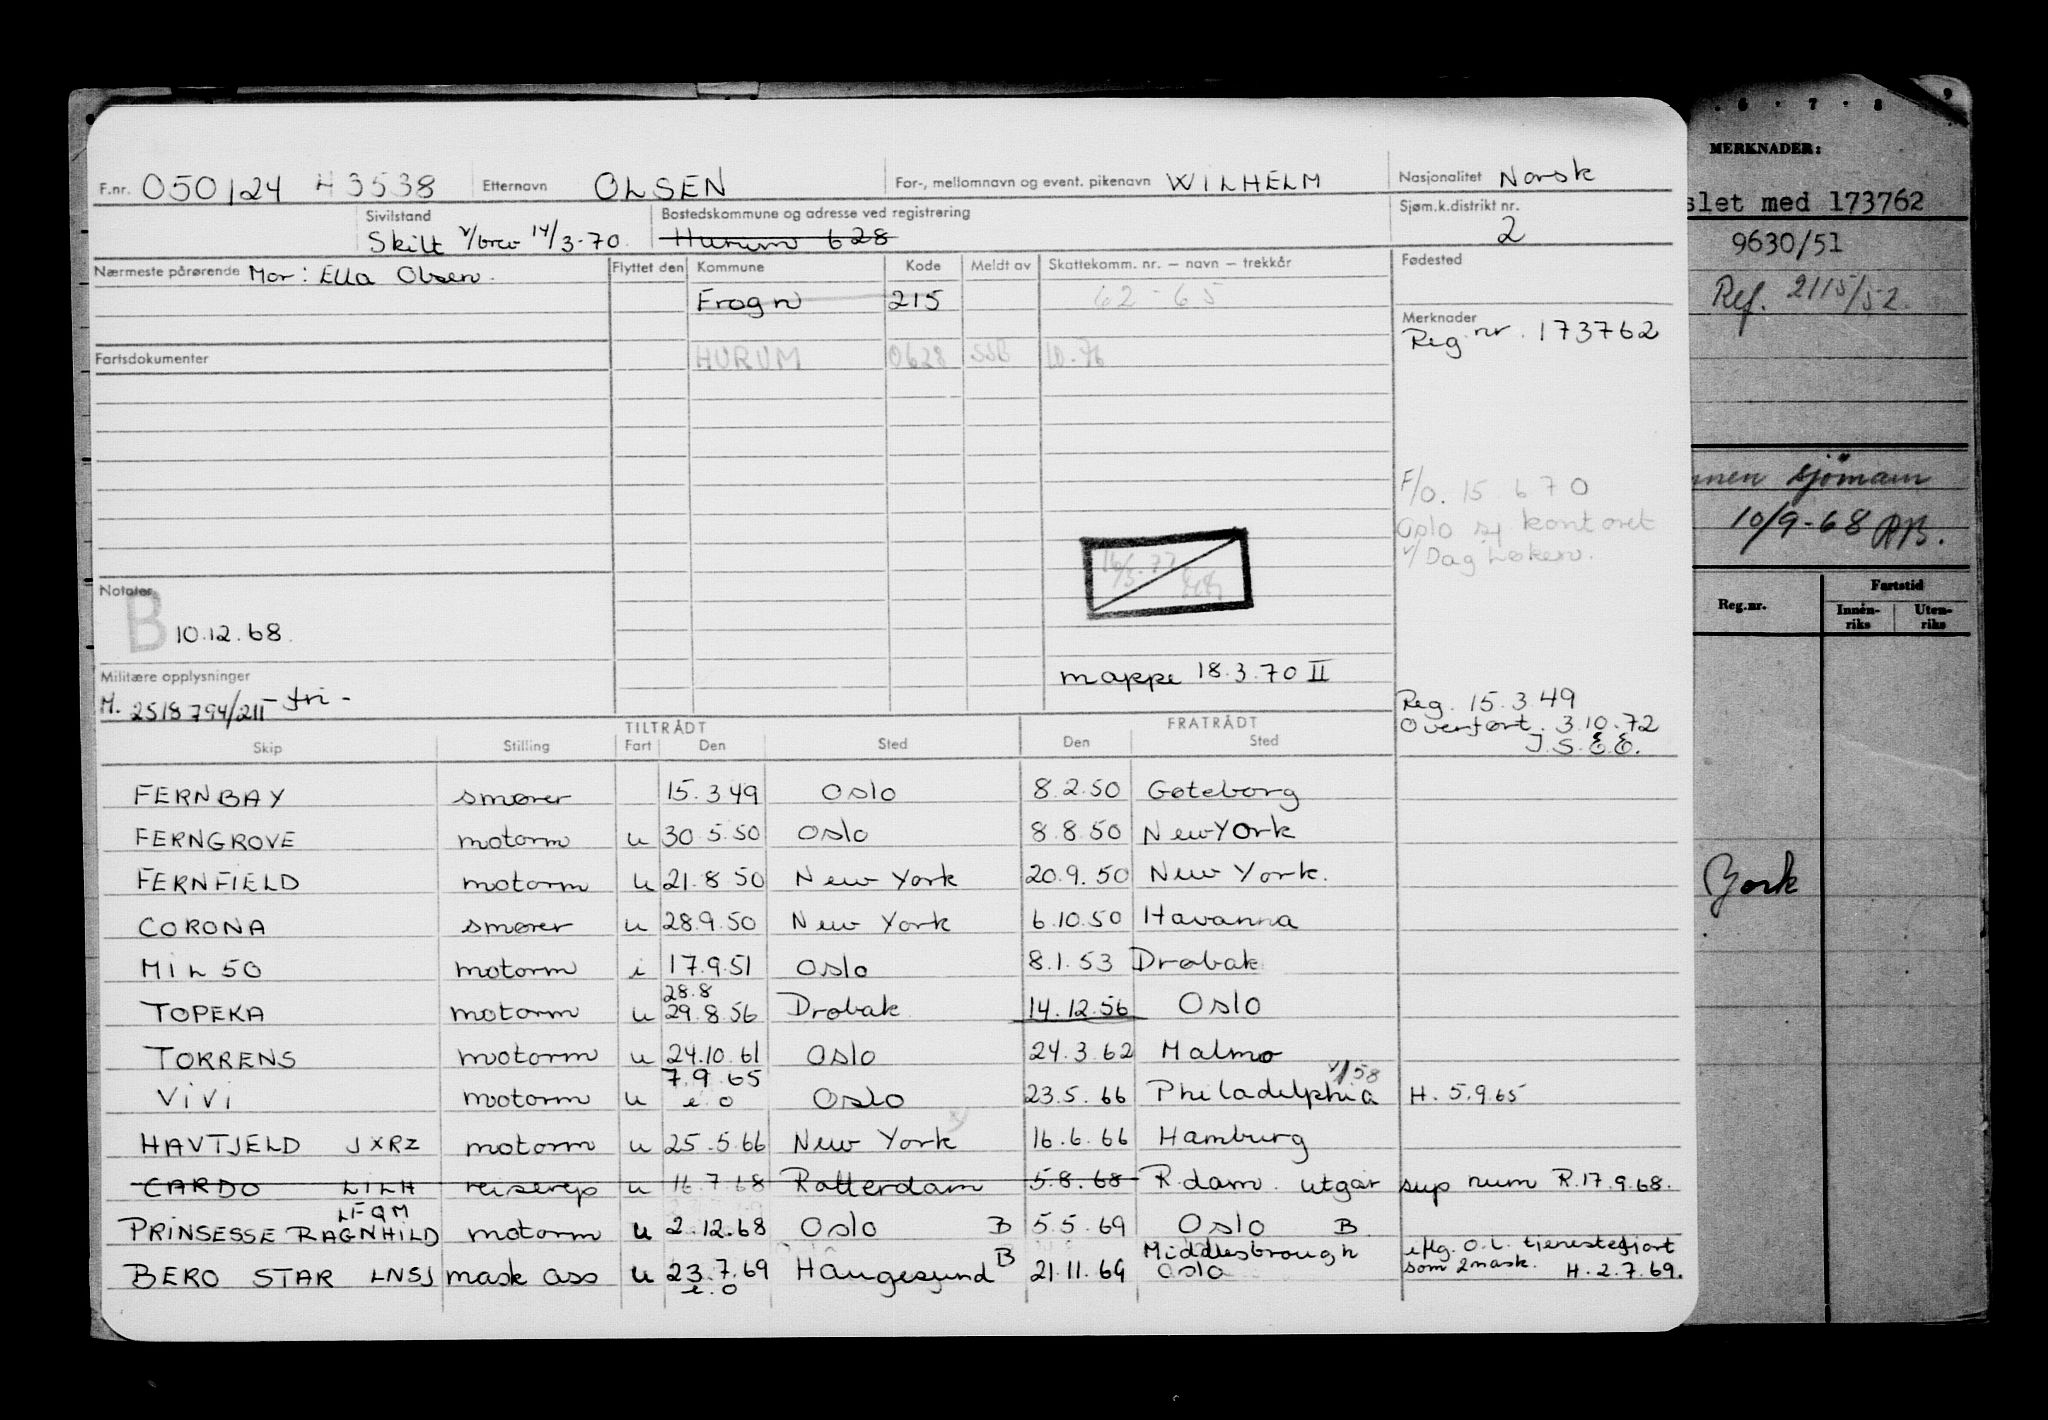 F.nr. 050124 43538 Etternavn OLSEN For-, mellomnavn og event. pikenavn WILHELM Nasjonalitet Norsk
Sivilstand Skilt v/brev 14/3-70. Bostedskommune og adresse ved registrering Hurum 628 Sjøm.k.distrikt nr. 2
Nærmeste pårørende Mor: Ella Olsen. Flyttet den Kommune Kode Meldt av Skattekomm. nr. – navn – trekkår Fødested
Frogn 215 62-65
Merknader
Reg nr. 173762
Fartsdokumenter HURUM 0628 SSB 10.76
F/O. 15.6 70
Oslo sj kontoret
v/Dag Løken.
16/3.77
Notater
B 10.12.68.
Militære opplysninger
M. 2518794/211 - fri -
mappe 18.3.70 II
Reg. 15.3.49
Overført. 3.10.72
J.S.E.E.
TILTRÅDT FRATRÅDT
Skip Stilling Fart Den Sted Den Sted
FERNBAY smører 15.3 49 Oslo 8.2.50 Gøteborg
FERNGROVE motorm u 30.5.50 Oslo 8.8.50 New York
FERNFIELD motorm u 21.8.50 New York 20.9.50 New York.
CORONA smører u 28.9.50 New York 6.10.50 Havanna
MIL 50 motorm i 17.9.51 Oslo 8.1.53 Drøbak
28.8
TOPEKA motorm u 29.8.56 Drøbak 14.12.56 Oslo
TORRENS motorm u 24.10.61 Oslo 24.3.62 Malmø
7.9.65 v/58
VIVI motorm u e.o Oslo 23.5.66 Philadelphia H. 5.9.65
HAVTJELD JXRZ motorm u 25.5.66 New York x) 16.6.66 Hamburg
CARDO LILH reiserep u 16.7.68 Rotterdam 5.8.68 R.dam. utgår sup num R.17.9.68.
LFQM
PRINSESSE RAGNHILD motorm u 2.12.68 Oslo B 5.5.69 Oslo B.
Middlesbrough eflg. O.L. tjenestegjort
BERO STAR LNSJ mask ass u 23.7.69 Haugesund B 21.11.69 Oslo som 2mask. H.2.7.69.
e.o
6 · 7 · 8 9
MERKNADER:
slet med 173762
9630/51
Ref. 2115/52.
nnen sjömann
10/9-68 RB.
Reg.nr. Fartstid
Innen-riks Uten-riks
York